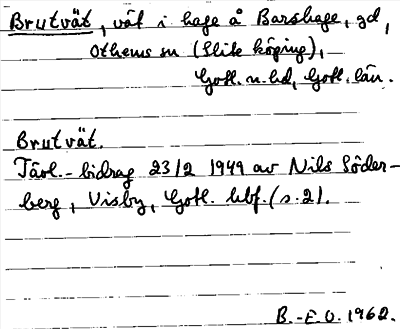 Brutvät, vät i hage å Barshage, gd,
Othems sn (Slite köping),
Gotl. n. hd, Gotl. län.
Brutvät.
Tävl.-bidrag 23/2 1949 av Nils Söder-
berg, Visby, Gotl. hbf. (s. 2).
B.-E.O. 1962.